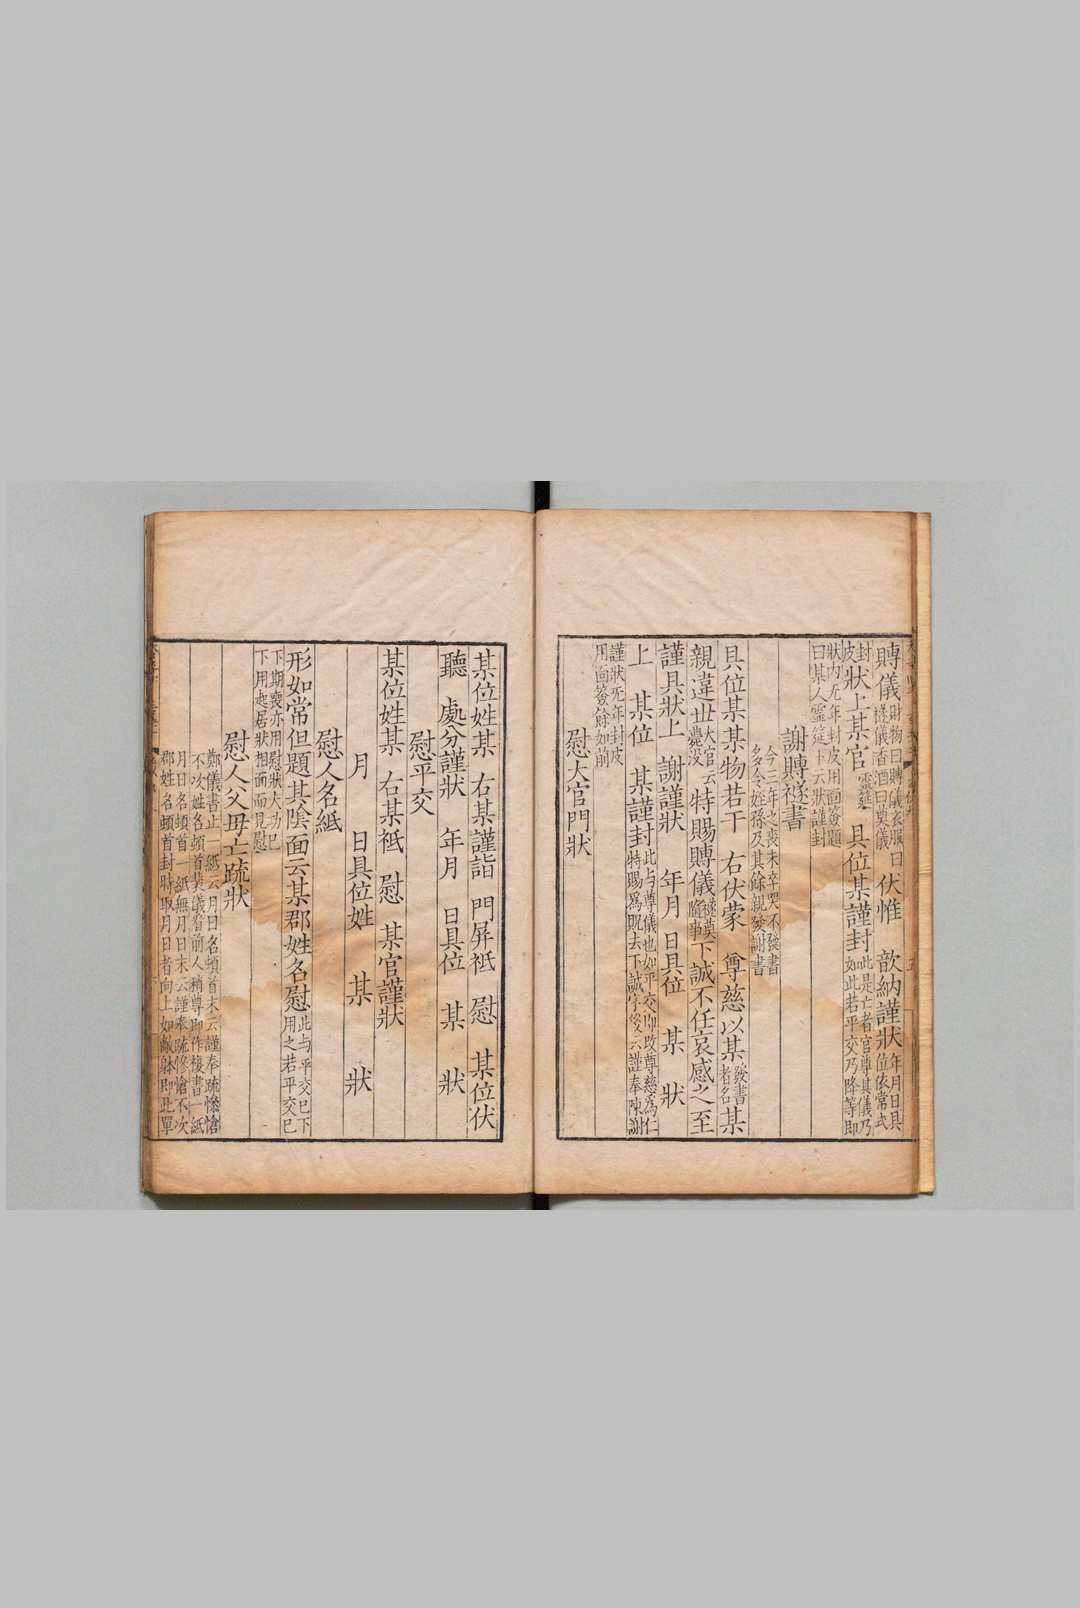 賻儀財物曰賻儀衣服曰襚儀香酒曰奠儀伏惟　歆納謹狀年月日具位依常式
封皮狀上某官靈筵　具位某謹封此是亡者官尊其儀乃如此若平交乃降等即
狀内无年封皮用面簽題曰某人靈筵下云狀謹封
謝賻襚書今三年之喪未卒哭不發書多令姪孫及其餘親發謝書
具位某某物若干　右伏蒙　尊慈以某發書者名某
親違世大官云薨沒特賜賻儀襚奠隨事下誠不任哀感之至
謹具狀上　謝謹狀　年月日具位　某　狀
上　某位　某謹封此与尊儀也如平交即改尊慈爲仁特賜爲貺去下誠字後云謹奉陳謝
謹狀无年封皮用面簽餘如前
慰大官門狀
某位姓某　右某謹詣　門屏祗　慰　某位伏
聽　處分謹狀　年月　日具位　某　狀
慰平交
某位姓某　右某祗　慰　某官謹狀
月　日具位姓　某　狀
慰人名紙
形如常但題其陰面云某郡姓名慰此与平交已下用之若平交已
下期喪亦用慰狀大功已下用起居狀相面而見慰
慰人父母亡疏狀
鄭儀書止一紙云月日名頓首末云謹奉疏慘愴不次姓名頓首裴儀看前人稍尊即作複書一紙
月日名頓首一紙無月日末云謹奉疏慘愴不次郡姓名頓首封時取月日者向上如敵體即此單